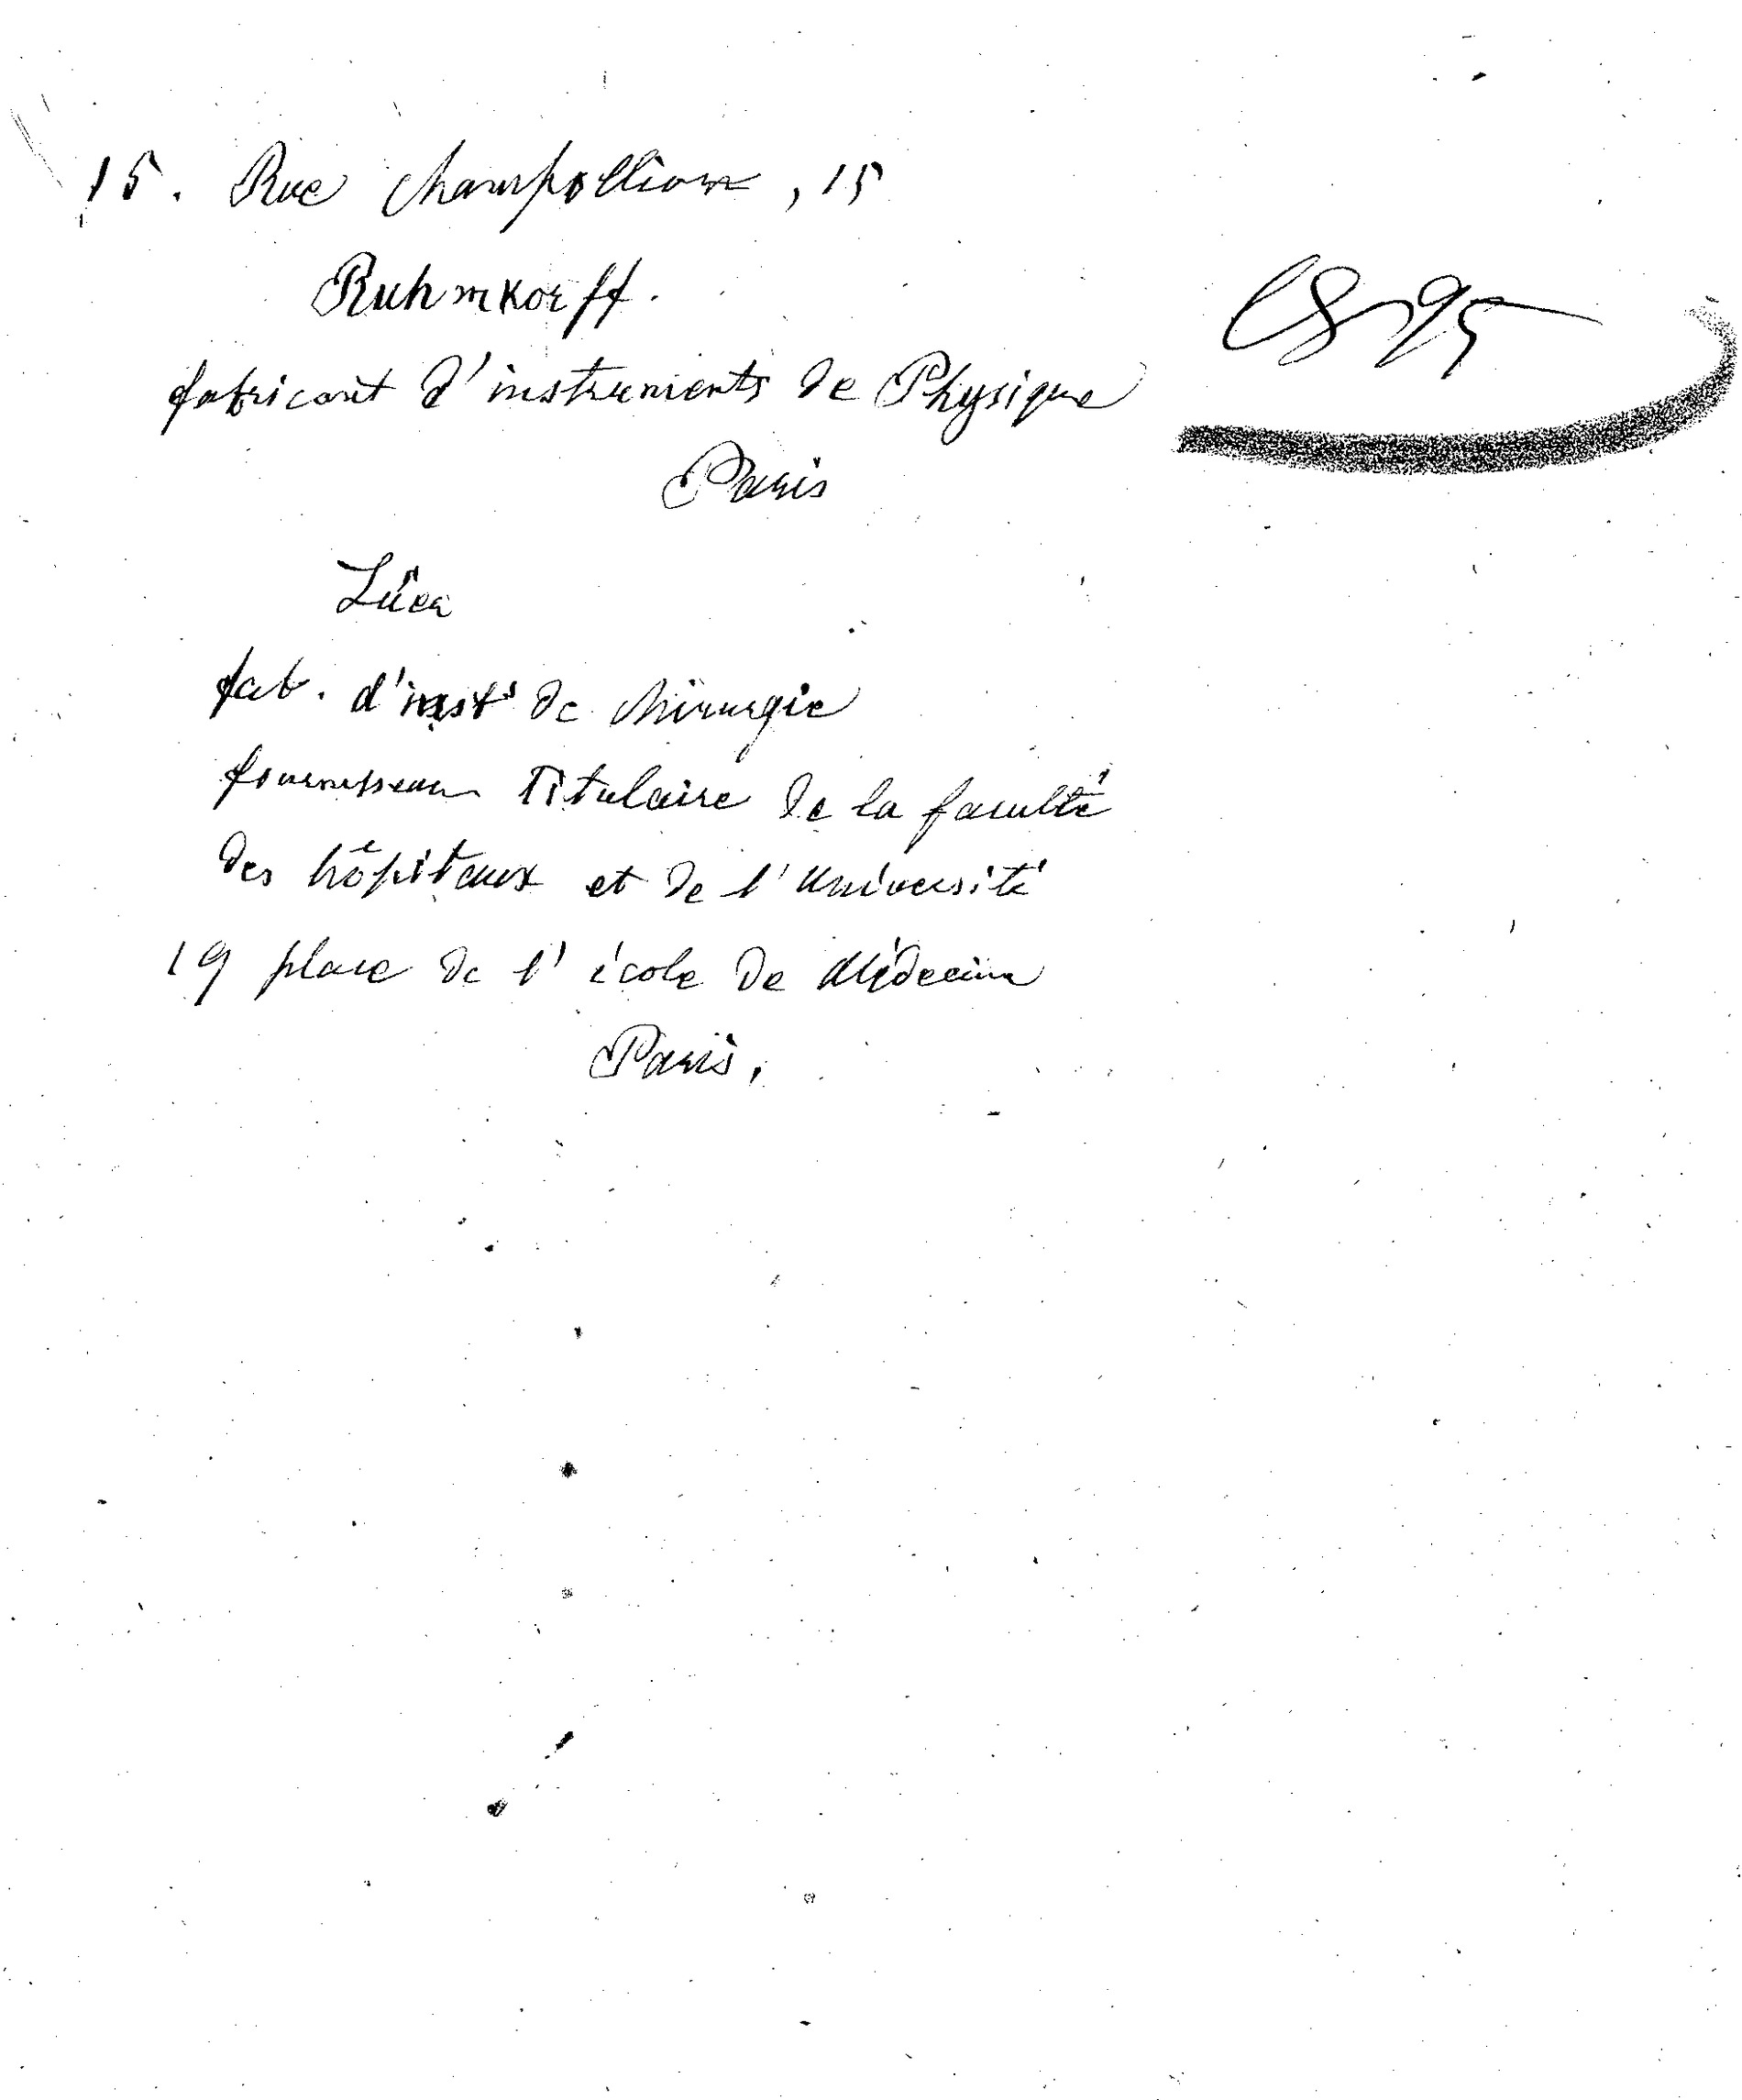 15. Rue Champollion, 15
Ruhmkorff.
fabricant d'instruments de Physique
Paris
Lüer
fab. d'inst⁺ˢ de chirurgie
fournisseur Titulaire de la faculté
des hôpitaux et de l'Université
19 place de l'école de Médecine
Paris.